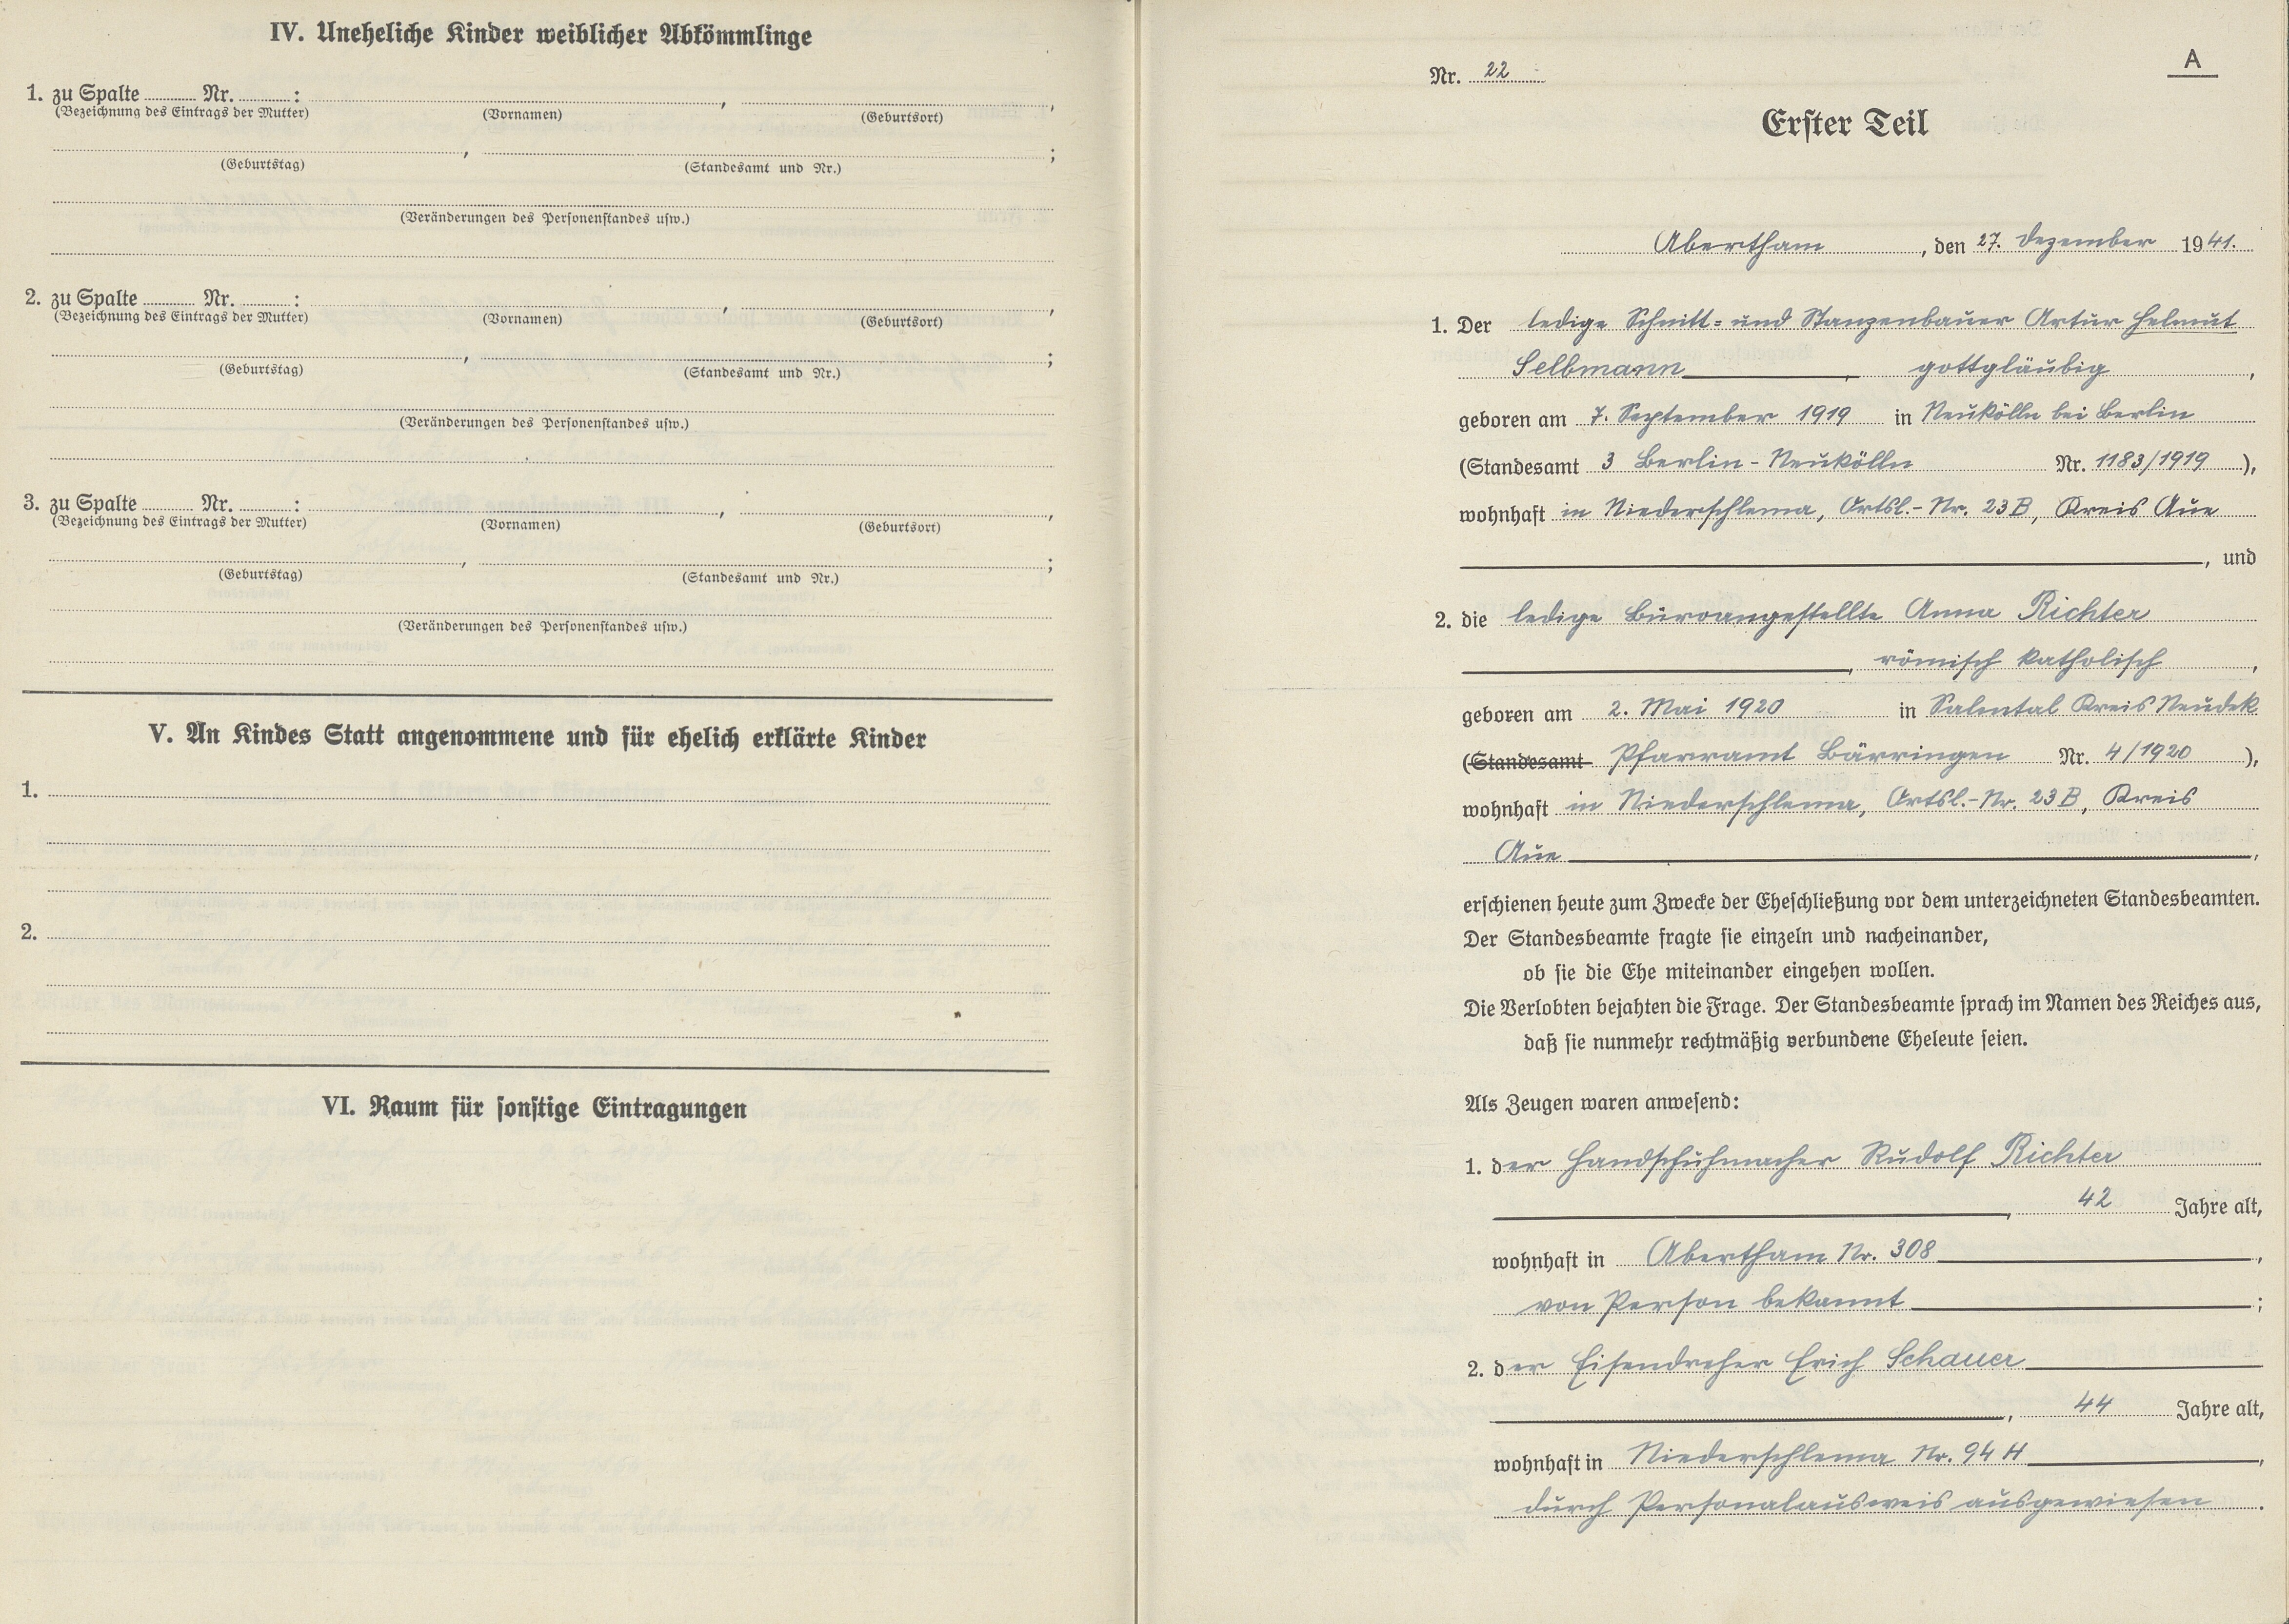 IV. Uneheliche Kinder weiblicher Abkömmlinge
1. zu Spalte ........ Nr. ........ : , ,
(Bezeichnung des Eintrags der Mutter) (Vornamen) (Geburtsort)
, ;
(Geburtstag) (Standesamt und Nr.)
(Veränderungen des Personenstandes usw.)
2. zu Spalte ........ Nr. ........ : , ,
(Bezeichnung des Eintrags der Mutter) (Vornamen) (Geburtsort)
, ;
(Geburtstag) (Standesamt und Nr.)
(Veränderungen des Personenstandes usw.)
3. zu Spalte ........ Nr. ........ : , ,
(Bezeichnung des Eintrags der Mutter) (Vornamen) (Geburtsort)
, ;
(Geburtstag) (Standesamt und Nr.)
(Veränderungen des Personenstandes usw.)
V. An Kindes Statt angenommene und für ehelich erklärte Kinder
1.
2.
VI. Raum für sonstige Eintragungen
A
Nr. 22
Erster Teil
Abertham, den 27. Dezember 1941.
1. Der ledige Schnitt- und Stanzenbauer Artur Helmut
Selbmann, gottgläubig,
geboren am 7. September 1919 in Neukölln bei Berlin
(Standesamt 3 Berlin-Neukölln Nr. 1183/1919),
wohnhaft in Niederschlema, Ortsl.-Nr. 23B, Kreis Aue
, und
2. die ledige Büroangestellte Anna Richter
, römisch katholisch,
geboren am 2. Mai 1920 in Salmtal Kreis Neudek
(Standesamt Pfarramt Bärringen Nr. 4/1920),
wohnhaft in Niederschlema, Ortsl.-Nr. 23B, Kreis
Aue,
erschienen heute zum Zwecke der Eheschließung vor dem unterzeichneten Standesbeamten.
Der Standesbeamte fragte sie einzeln und nacheinander,
ob sie die Ehe miteinander eingehen wollen.
Die Verlobten bejahten die Frage. Der Standesbeamte sprach im Namen des Reiches aus,
daß sie nunmehr rechtmäßig verbundene Eheleute seien.
Als Zeugen waren anwesend:
1. der Handschuhmacher Rudolf Richter
, 42 Jahre alt,
wohnhaft in Abertham Nr. 308,
von Person bekannt;
2. der Eisendreher Erich Schauer
, 44 Jahre alt,
wohnhaft in Niederschlema Nr. 94 H,
durch Personalausweis ausgewiesen.